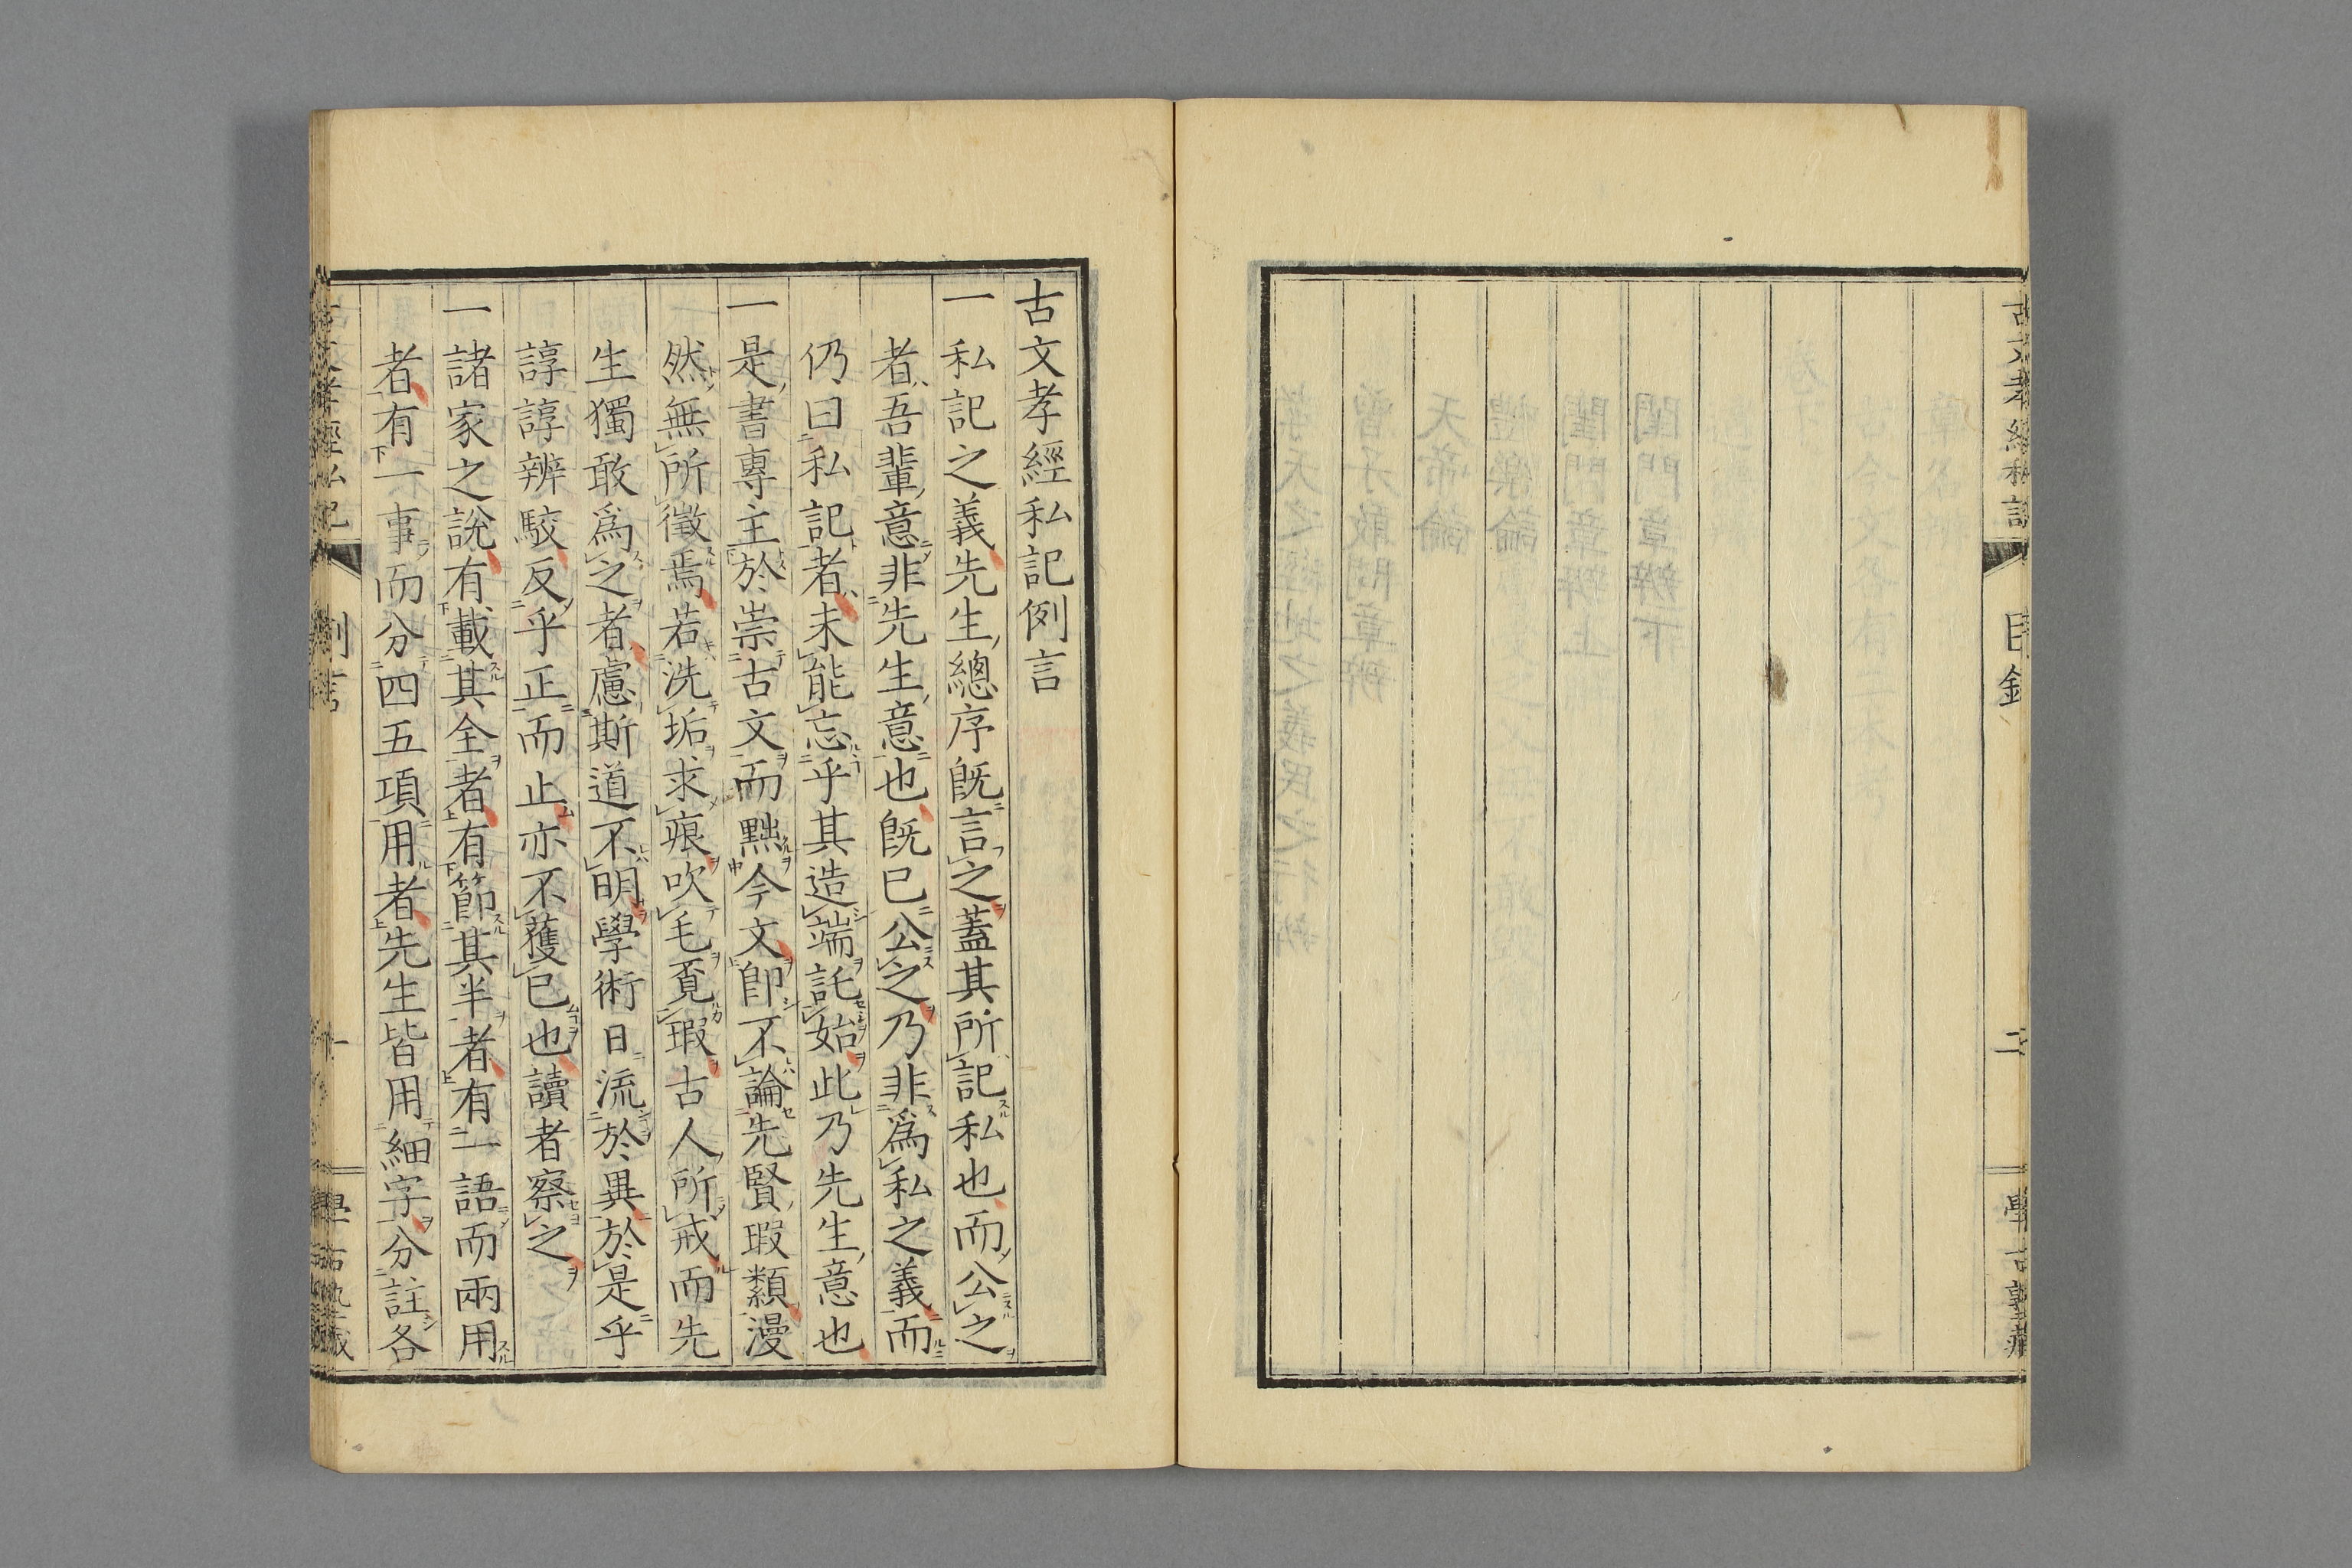 古文孝經私記
目錄
二
學古塾藏
古文孝經私記例言
一私記之義先生總序旣言之蓋其所記私也而公之
者吾輩意非先生意也旣已公之乃非爲私之義而
仍曰私記者未能忘乎其造端託始此乃先生意也
一是書專主於崇古文而黜今文卽不論先賢瑕纇漫
然無所徵焉若洗垢求痕吹毛覔瑕古人所戒而先
生獨敢爲之者慮斯道不明學術日流於異於是乎
諄諄辨駁反乎正而止亦不獲已也讀者察之
一諸家之說有載其全者有節其半者有一語而兩用
者有一事而分四五項用者先生皆用細字分註各
古文孝經私記
例言
一
學古塾藏